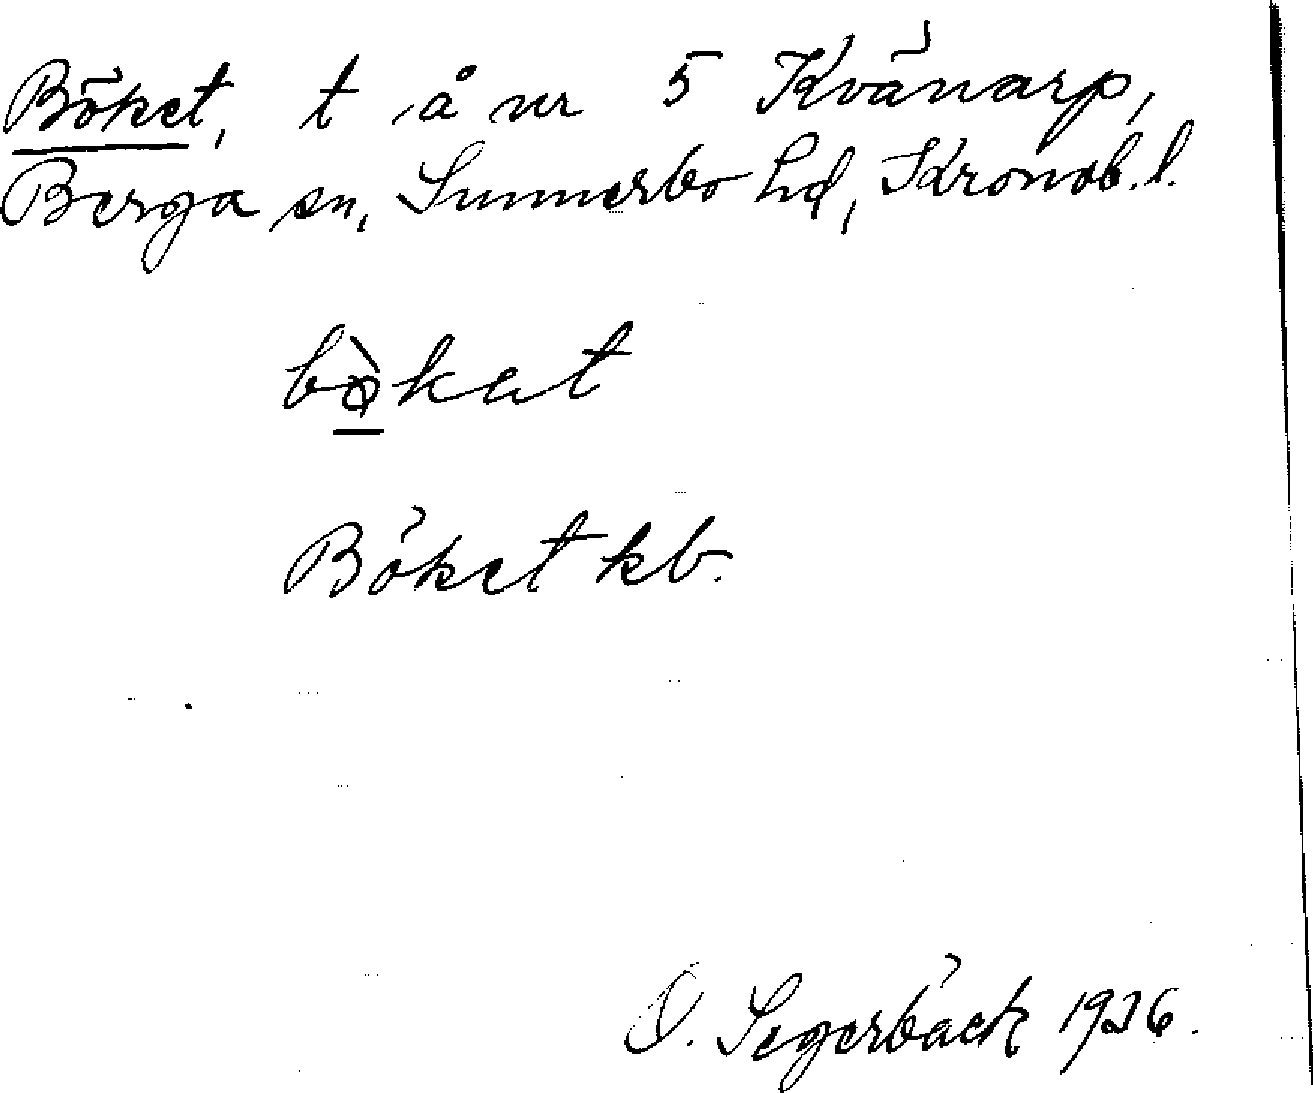 Böket, t å nr 5 Kvänarp,
Berga sn, Sunnerbo hd, Kronob. l.
bø̀kat
Böket kb.
O. Segerbäck 1926.